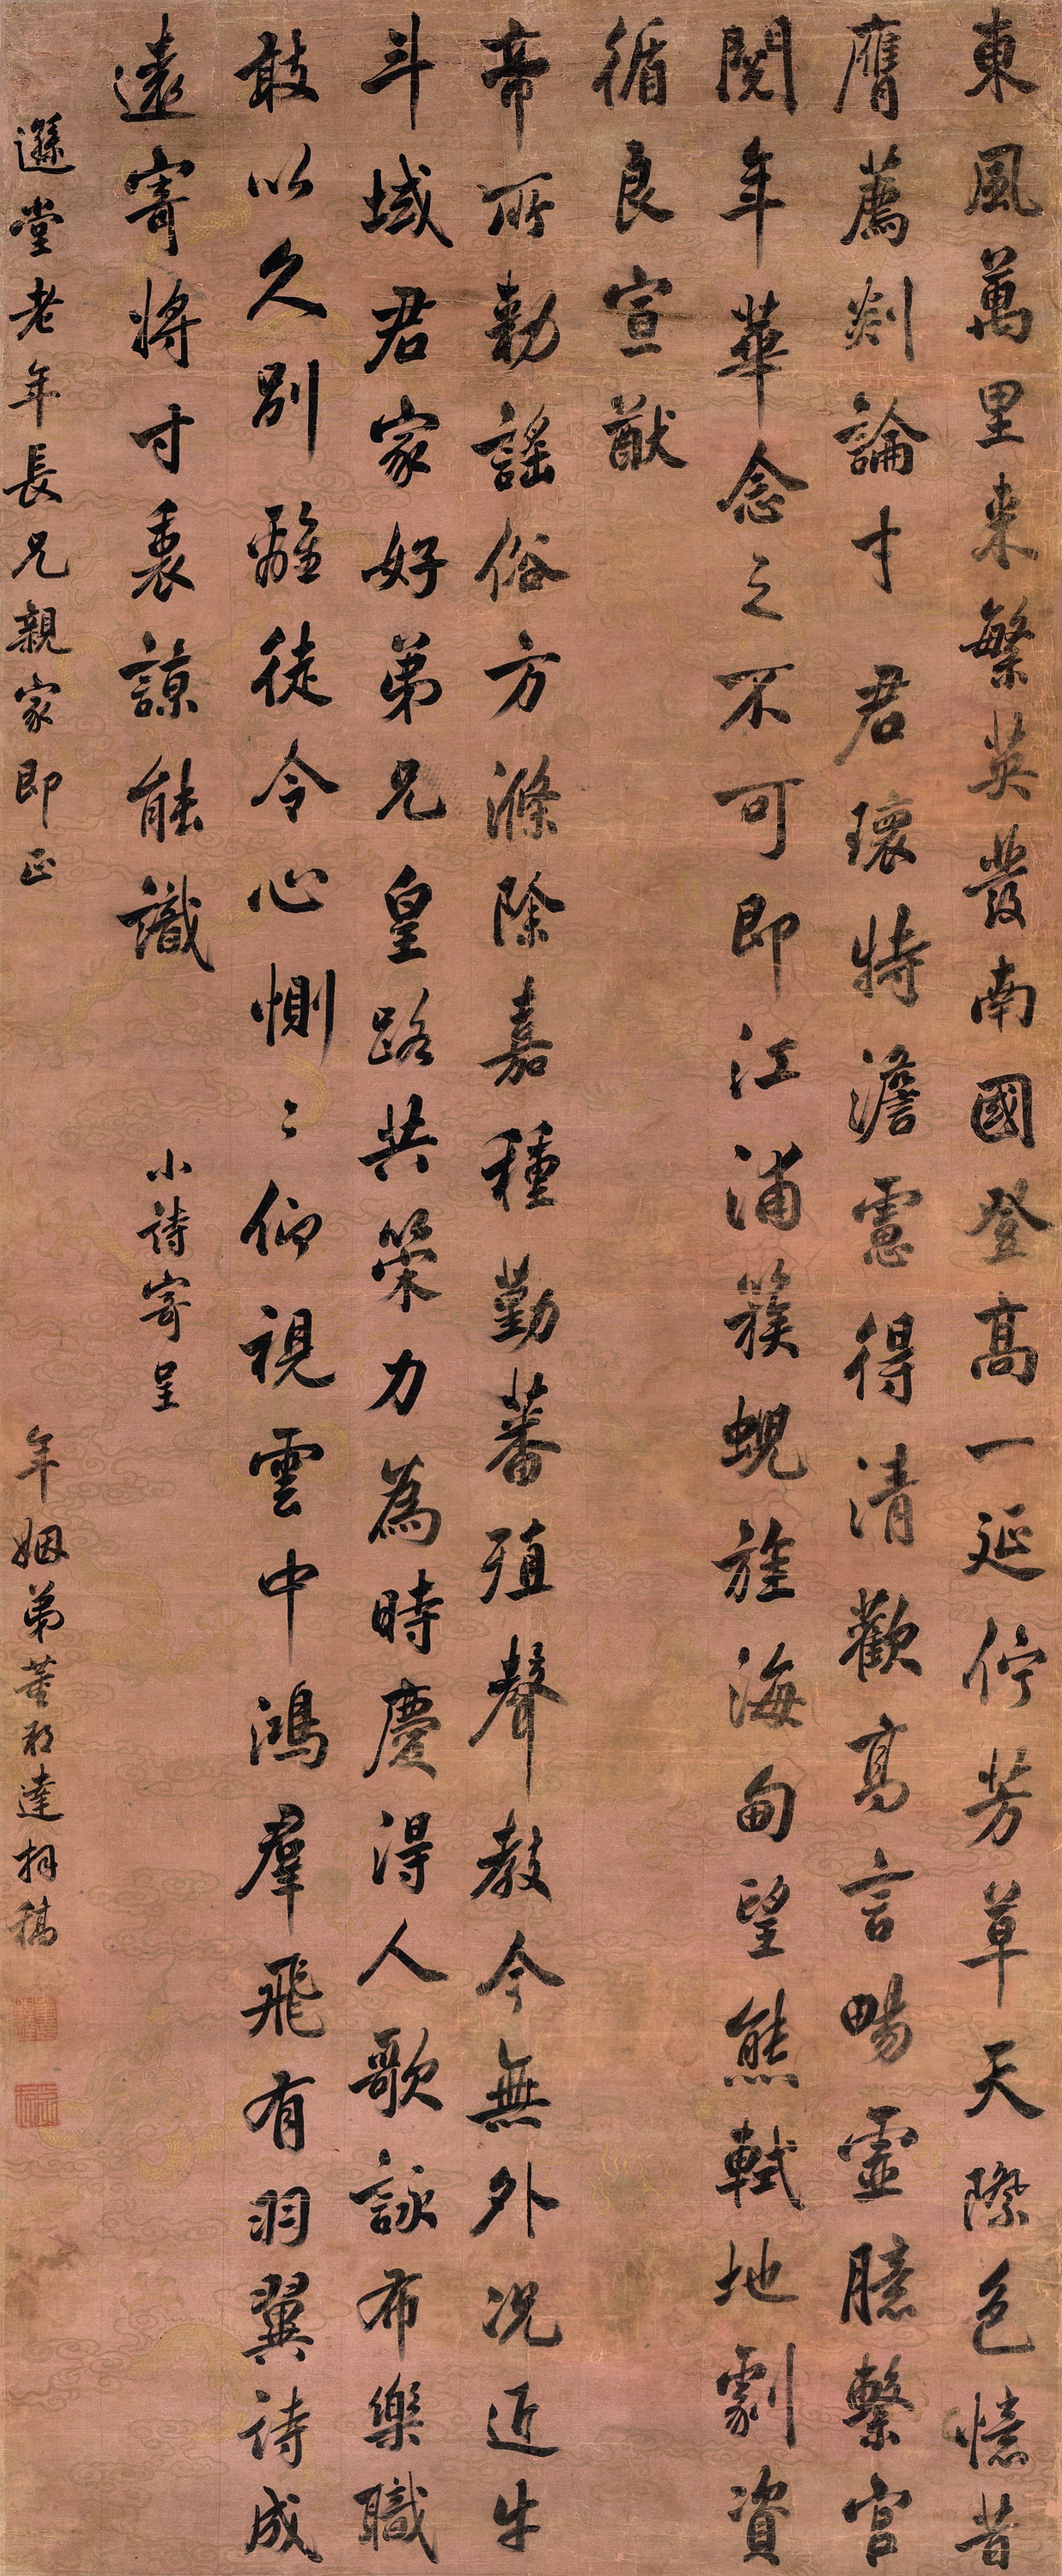 東風萬里来繁英發南國登高一延佇芳草天際色憶昔
膺薦剡論才君瓌特澹慮得清歡高言暢靈臆繫官
閱年華念之不可即江浦簇蜺旌海甸望熊軾地劇資
循良宣猷
帝所勅謠俗方滌除嘉種勤蕃殖聲教今無外况近牛
斗域君家好弟兄皇路共策力為時慶得人歌詠布樂職
敢以久別離徒令心惻〻仰視雲中鴻羣飛有羽翼詩成
遠寄將寸裏諒能識
小詩寄呈
遜堂老年長兄親家即正
年姻弟董邦達拜稿